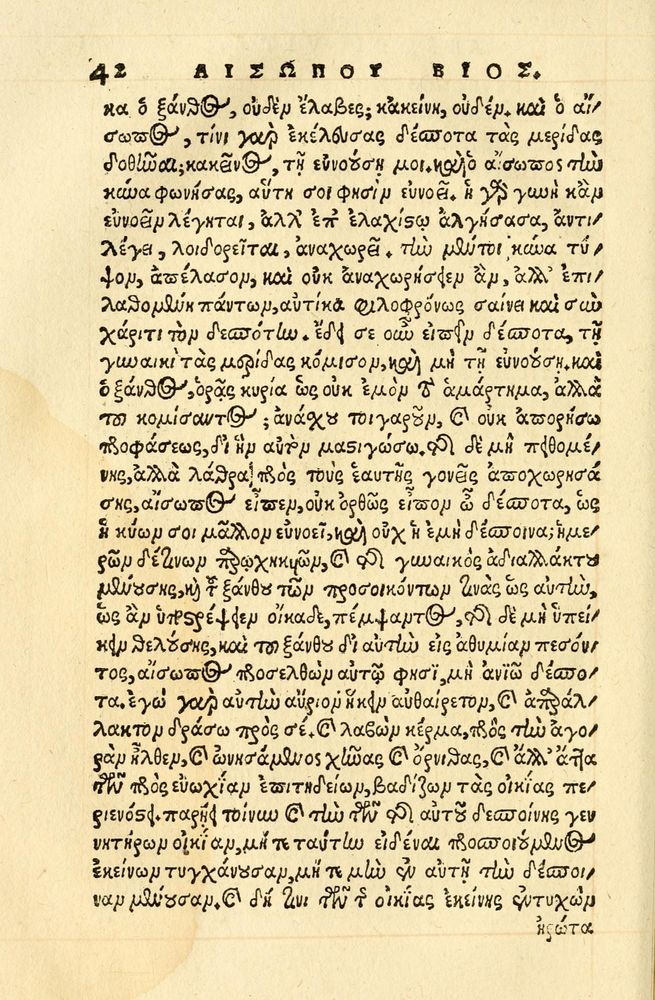 42 ΑΙΣΩΠΟΥ ΒΙΟΣ.
κα ὁ ξάνθος, οὐδὲν ἔλαβες; κἀκείνη, οὐδέν. καὶ ὁ αἴ-
σωπος, τίνι γὰρ ἐκέλευσας δέσποτα τὰς μερίδας
δοθῆναι; κἀκεῖνος, τῇ εὐνούσῃ μοι. καὶ ὁ αἴσωπος τὴν
κύνα φωνήσας, αὕτη σοι φησὶν εὐνοεῖ. ἡ γὰρ γυνὴ κἂν
εὐνοεῖν λέγηται, ἀλλ' ἐπ' ἐλαχίστῳ ἀλγήσασα, ἀντι-
λέγει, λοιδορεῖται, ἀναχωρεῖ. τὴν μέντοι κύνα τύ-
ψον, ἀπέλασον, καὶ οὐκ ἀναχωρήσειεν ἂν, ἀλλ' ἐπι-
λαθομένη πάντων, αὐτίκα φιλοφρόνως σαίνει καὶ σὺν
χάριτι τὸν δεσπότην. ἔδει σε οὖν εἰπεῖν δέσποτα, τῇ
γυναικὶ τὰς μερίδας κόμισον, καὶ μὴ τῇ εὐνούσῃ. καὶ
ὁ ξάνθος, ὁρᾷς κυρία ὡς οὐκ ἐμὸν τὸ ἁμάρτημα, ἀλλὰ
τοῦ κομίσαντος; ἀνάσχου τοιγαροῦν, καὶ οὐκ ἀπορήσω
προφάσεως, δι' ἣν αὐτὸν μαστιγώσω. τῆς δὲ μὴ πειθομέ-
νης, ἀλλὰ λάθρα πρὸς τοὺς ἑαυτῆς γονεῖς ἀποχωρησά-
σης, αἴσωπος εἶπεν, οὐκ ὀρθῶς εἶπον ὦ δέσποτα, ὡς
ἡ κύων σοι μᾶλλον εὐνοεῖ, καὶ οὐχ ἡ ἐμὴ δέσποινα; ἡμε-
ρῶν δέ τινων παρῳχηκυιῶν, καὶ τῆς γυναικὸς ἀδιαλλάκτου
μενούσης, καὶ τοῦ ξάνθου τῶν προσοικόντων τινὰς ὡς αὐτὴν,
ὡς ἂν ὑποστρέψειεν οἴκαδε, πέμψαντος, τῆς δὲ μὴ ὑπεί-
κειν θελούσης, καὶ τοῦ ξάνθου δι' αὐτὴν εἰς ἀθυμίαν πεσόν-
τος, αἴσωπος προσελθὼν αὐτῷ φησὶ, μὴ ἀνιῶ δέσπο-
τα. ἐγὼ γὰρ αὐτὴν αὔριον ἥκειν αὐθαίρετον, καὶ ἀπαράλ-
λακτον δράσω πρὸς σέ. καὶ λαβὼν κέρμα, πρὸς τὴν ἀγο-
ρὰν ἦλθεν, καὶ ὠνησάμενος χῆνας καὶ ὄρνιθας, καὶ ἄλλ' ἄττα
τῶν πρὸς εὐωχίαν ἐπιτηδείων, βαδίζων τὰς οἰκίας πε-
ριενόστει. παρῄει τοίνυν καὶ τὴν τῶν τῆς αὐτοῦ δεσποίνης γεν
νητόρων οἰκίαν, μή τε ταύτην εἰδέναι προσποιούμενος
ἐκείνων τυγχάνουσαν, μή τε μὴν ἐν αὐτῇ τὴν δέσποι-
ναν μένουσαν. καὶ δή τινι τῶν τῆς οἰκίας ἐκείνης ἐντυχὼν
ἠρώτα